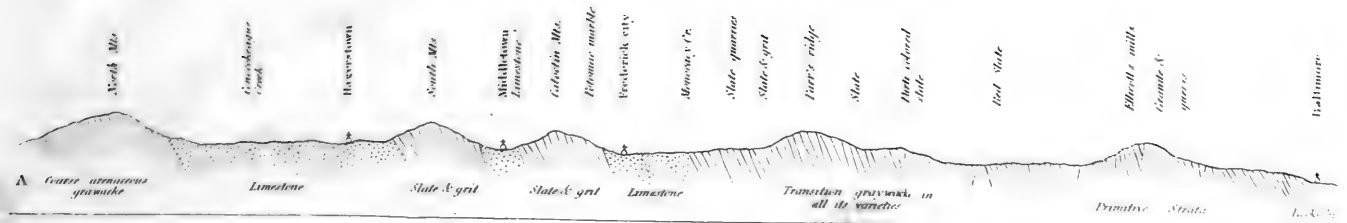 North Mts.
Conococheague
Creek
Hagerstown
South Mts
Middletown
Limestone
Catoctin Mts.
Potomac marble
Frederick city
Monocacy Cr.
Slate quarries
Slate & grit
Parr's ridge
Slate
Party colored
slate
Red Slate
Ellicott's mills
Granite &
quarries
Baltimore
A
Coarse arenaceous
grawacke
Limestone
Slate & grit
Slate & grit
Limestone
Transition graywack. in
all its varieties
Primitive Strata